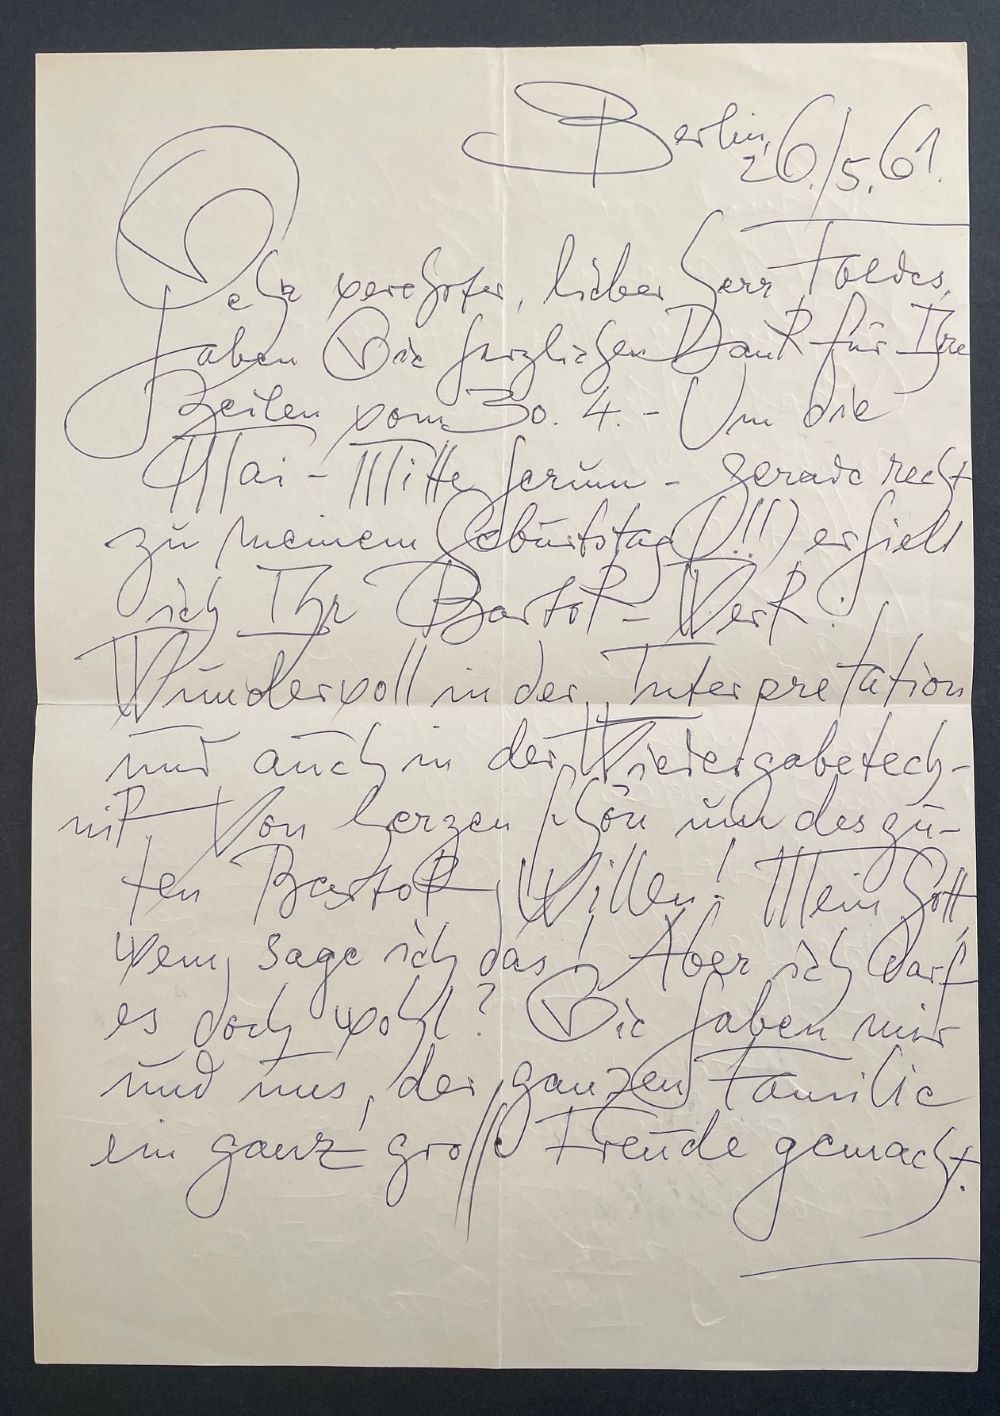 Berlin, 26./5. 61.
Sehr verehrter, lieber Herr Foldes,
haben Sie herzlichen Dank für Ihre
Zeilen vom 30. 4. - Um die
Mai - Mitte herum - gerade recht
zu meinem Geburtstag (!!!) erhielt
ich Ihr Bartok - Werk.
Wundervoll in der Interpretation
und auch in der Wiedergabetech-
nik. Von Herzen schön um des gu-
ten Bartok Willen! Mein Gott,
wem sage ich das! Aber ich darf
es doch wohl? Sie haben mir
und uns, der ganzen Familie
ein ganz große Freude gemacht.